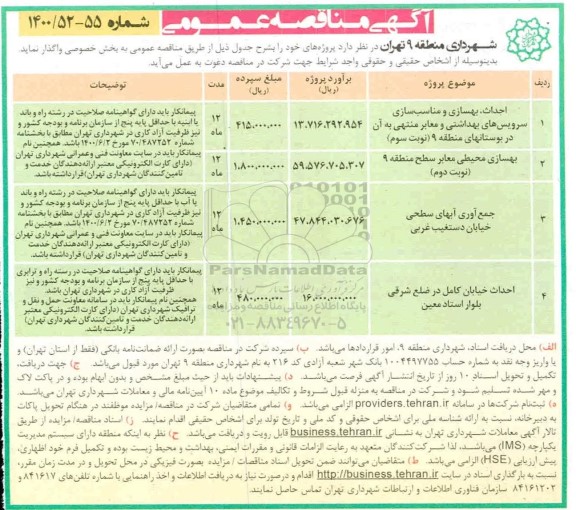 آگهی مناقصه عمومی
شماره ۵۵-۵۲-۱۴۰۰
شهرداری منطقه ۹ تهران در نظر دارد پروژه‌های خود را بشرح جدول ذیل از طریق مناقصه عمومی به بخش خصوصی واگذار نماید
بدینوسیله از اشخاص حقیقی و حقوقی واجد شرایط جهت شرکت در مناقصه دعوت به عمل می‌آید.
ردیف موضوع پروژه برآورد پروژه (ریال) مبلغ سپرده (ریال) مدت توضیحات
۱ احداث، بهسازی و مناسب‌سازی
سرویس‌های بهداشتی و معابر منتهی به آن
در بوستانهای منطقه ۹ (نوبت سوم)
۱۳.۷۱۶.۲۹۲.۹۵۴ ۴۱۵.۰۰۰.۰۰۰ ۱۲ ماه
پیمانکار باید دارای گواهینامه صلاحیت در رشته راه و باند
یا ابنیه با حداقل پایه پنج از سازمان برنامه و بودجه کشور و
نیز ظرفیت آزاد کاری در شهرداری تهران مطابق با بخشنامه
شماره ۷۰/۴۸۷۲۵۲ مورخ ۱۴۰۰/۶/۲ باشد. همچنین نام
پیمانکار باید در سایت معاونت فنی و عمرانی شهرداری تهران
(دارای کارت الکترونیکی معتبر ارائه‌دهندگان خدمت و
تامین کنندگان شهرداری تهران)قرارداشته باشد.
۲ بهسازی محیطی معابر سطح منطقه ۹
(نوبت دوم)
۵۹.۵۷۶.۷۰۵.۳۰۷ ۱.۸۰۰.۰۰۰.۰۰۰ ۱۲ ماه
۳ جمع‌آوری آبهای سطحی
خیابان دستغیب غربی
۴۷.۸۴۴.۰۳۰.۶۷۶ ۱.۴۵۰.۰۰۰.۰۰۰ ۱۲ ماه
پیمانکار باید دارای گواهینامه صلاحیت در رشته راه و باند
یا آب با حداقل پایه پنج از سازمان برنامه و بودجه کشور و
نیز ظرفیت آزاد کاری در شهرداری تهران مطابق با بخشنامه
شماره ۷۰/۴۸۷۲۵۲ مورخ ۱۴۰۰/۶/۲ باشد. همچنین نام
پیمانکار باید در سایت معاونت فنی و عمرانی شهرداری تهران
(دارای کارت الکترونیکی معتبر ارائه‌دهندگان خدمت
و تامین کنندگان شهرداری تهران) قرارداشته باشد.
۴ احداث خیابان کامل در ضلع شرقی
بلوار استاد معین
۱۶.۰۰۰.۰۰۰.۰۰۰ ۴۸۰.۰۰۰.۰۰۰ ۱۲ ماه
پیمانکار باید دارای گواهینامه صلاحیت در رشته راه و ترابری
با حداقل پایه پنج از سازمان برنامه و بودجه کشور و نیز
ظرفیت آزاد کاری در شهرداری تهران باشد.
همچنین نام پیمانکار باید در سامانه معاونت حمل و نقل و
ترافیک شهرداری تهران (دارای کارت الکترونیکی معتبر
ارائه‌دهندگان خدمت و تامین‌کنندگان شهرداری تهران)
قرارداشته باشد
ParsNamadData
پایگاه اطلاع رسانی مناقصه و مزایده
۰۲۱-۸۸۳۴۹۶۷۰-۵
الف) محل دریافت اسناد، شهرداری منطقه ۹، امور قراردادها می‌باشد. ب) سپرده شرکت در مناقصه بصورت ارائه ضمانت‌نامه بانکی (فقط از استان تهران) و
یا واریز وجه نقد به شماره حساب ۱۰۰۴۴۹۷۷۵۵ بانک شهر شعبه آزادی کد ۲۱۶ به نام شهرداری منطقه ۹ تهران مورد قبول می‌باشد. ج) جهت دریافت،
تکمیل و تحویل اسناد ۱۰ روز از تاریخ انتشار آگهی فرصت می‌باشد. د) پیشنهادات باید از حیث مبلغ مشخص و بدون ابهام بوده و در پاکت لاک
و مهر شده تسلیم شود و شرکت در مناقصه به منزله قبول شروط و تکالیف موضوع ماده ۱۰ آیین‌نامه مالی و معاملات شهرداری تهران می‌باشد.
ه) ثبت‌نام شرکت‌ها در سامانه providers.tehran.ir الزامی می‌باشد. و) تمامی متقاضیان شرکت در مناقصه/مزایده موظفند در هنگام تحویل پاکات
به دبیرخانه، نسبت به ارائه شناسه ملی برای اشخاص حقوقی و کد ملی و تاریخ تولد برای اشخاص حقیقی اقدام نمایند. ز) اسناد مناقصه/ مزایده از طریق
تالار آگهی معاملات شهرداری تهران به نشانی business.tehran.ir قابل رویت و دریافت می‌باشد. ح) نظر به اینکه منطقه دارای سیستم مدیریت
یکپارچه (IMS) می‌باشد، لذا شرکت‌کنندگان متعهد به رعایت الزامات قانونی و مقررات ایمنی، بهداشت و محیط زیست بوده و تکمیل فرم خود اظهاری،
پیش ارزیابی (HSE) الزامی می‌باشد. ط) متقاضیان می‌توانند ضمن تحویل اسناد مناقصات / مزایده بصورت فیزیکی در محل تحویل و در مدت زمان مقرر،
نسبت به بارگذاری اسناد در سایت http://business.tehran.ir اقدام و درصورت نیاز به دریافت اطلاعات و اخذ راهنمایی با شماره تلفن‌های ۸۴۱۶۱۷ و
۸۴۱۶۱۲۰۲ سازمان فناوری اطلاعات و ارتباطات شهرداری تهران تماس حاصل نمایند.